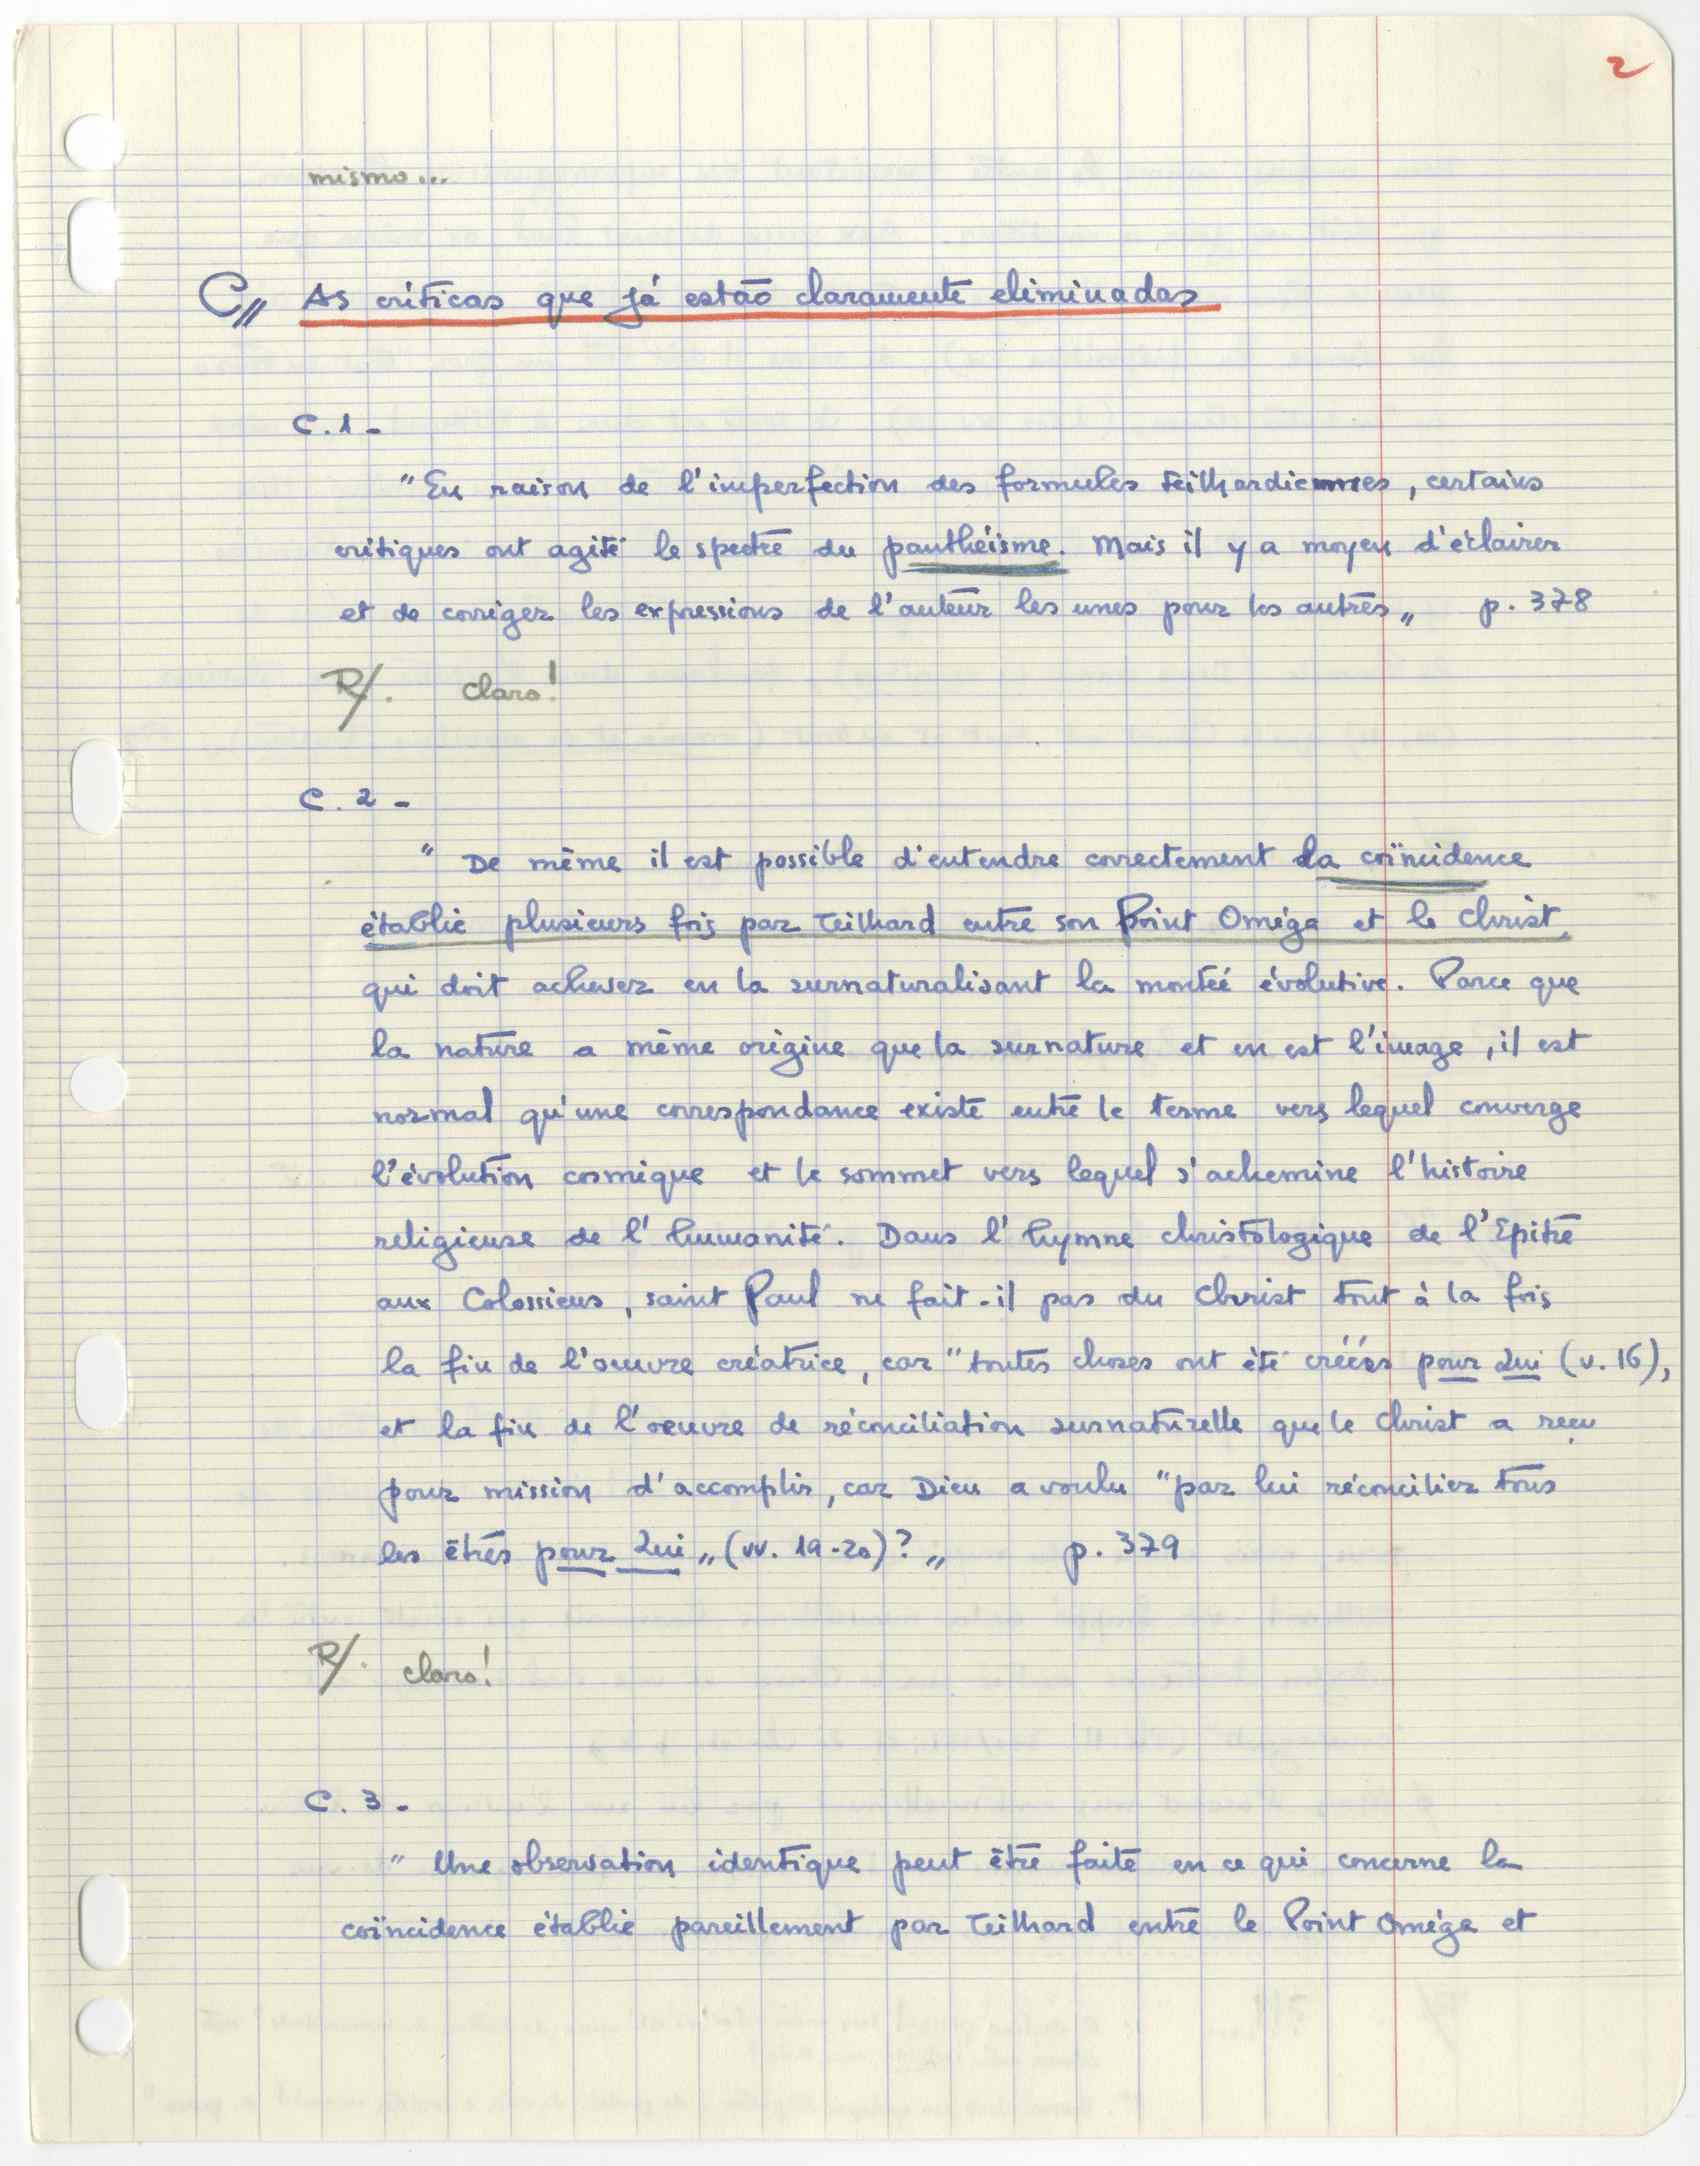 2
mismo...
C// As críticas que já estão claramente eliminadas
C.1-
"En raison de l'imperfection des formules teilhardiennes, certains
critiques ont agité le spectre du panthéisme. Mais il y a moyen d'éclairer
et de corriger les expressions de l'auteur les unes pour les autres„ p. 378
R/. claro!
C.2-
" De même il est possible d'entendre correctement la coïncidence
établie plusieurs fois par Teilhard entre son Point Oméga et le Christ,
qui doit achever en la surnaturalisant la montée évolutive. Parce que
la nature a même origine que la surnature et en est l'image, il est
normal qu'une correspondance existe entre le terme vers lequel converge
l'évolution cosmique et le sommet vers lequel s'achemine l'histoire
religieuse de l'humanité. Dans l'hymne christologique de l'Epitre
aux Colossiens, saint Paul ne fait-il pas du Christ tout à la fois
la fin de l'oeuvre créatrice, car "toutes choses ont été créées pour Lui (v. 16),
et la fin de l'oeuvre de réconciliation surnaturelle que le Christ a reçu
pour mission d'accomplir, car Dieu a voulu "par lui réconcilier tous
les êtres pour Lui„ (vv. 19-20)?„ p. 379
R/. claro!
C.3-
" Une observation identique peut être faite en ce qui concerne la
coïncidence établie pareillement par Teilhard entre le Point Oméga et